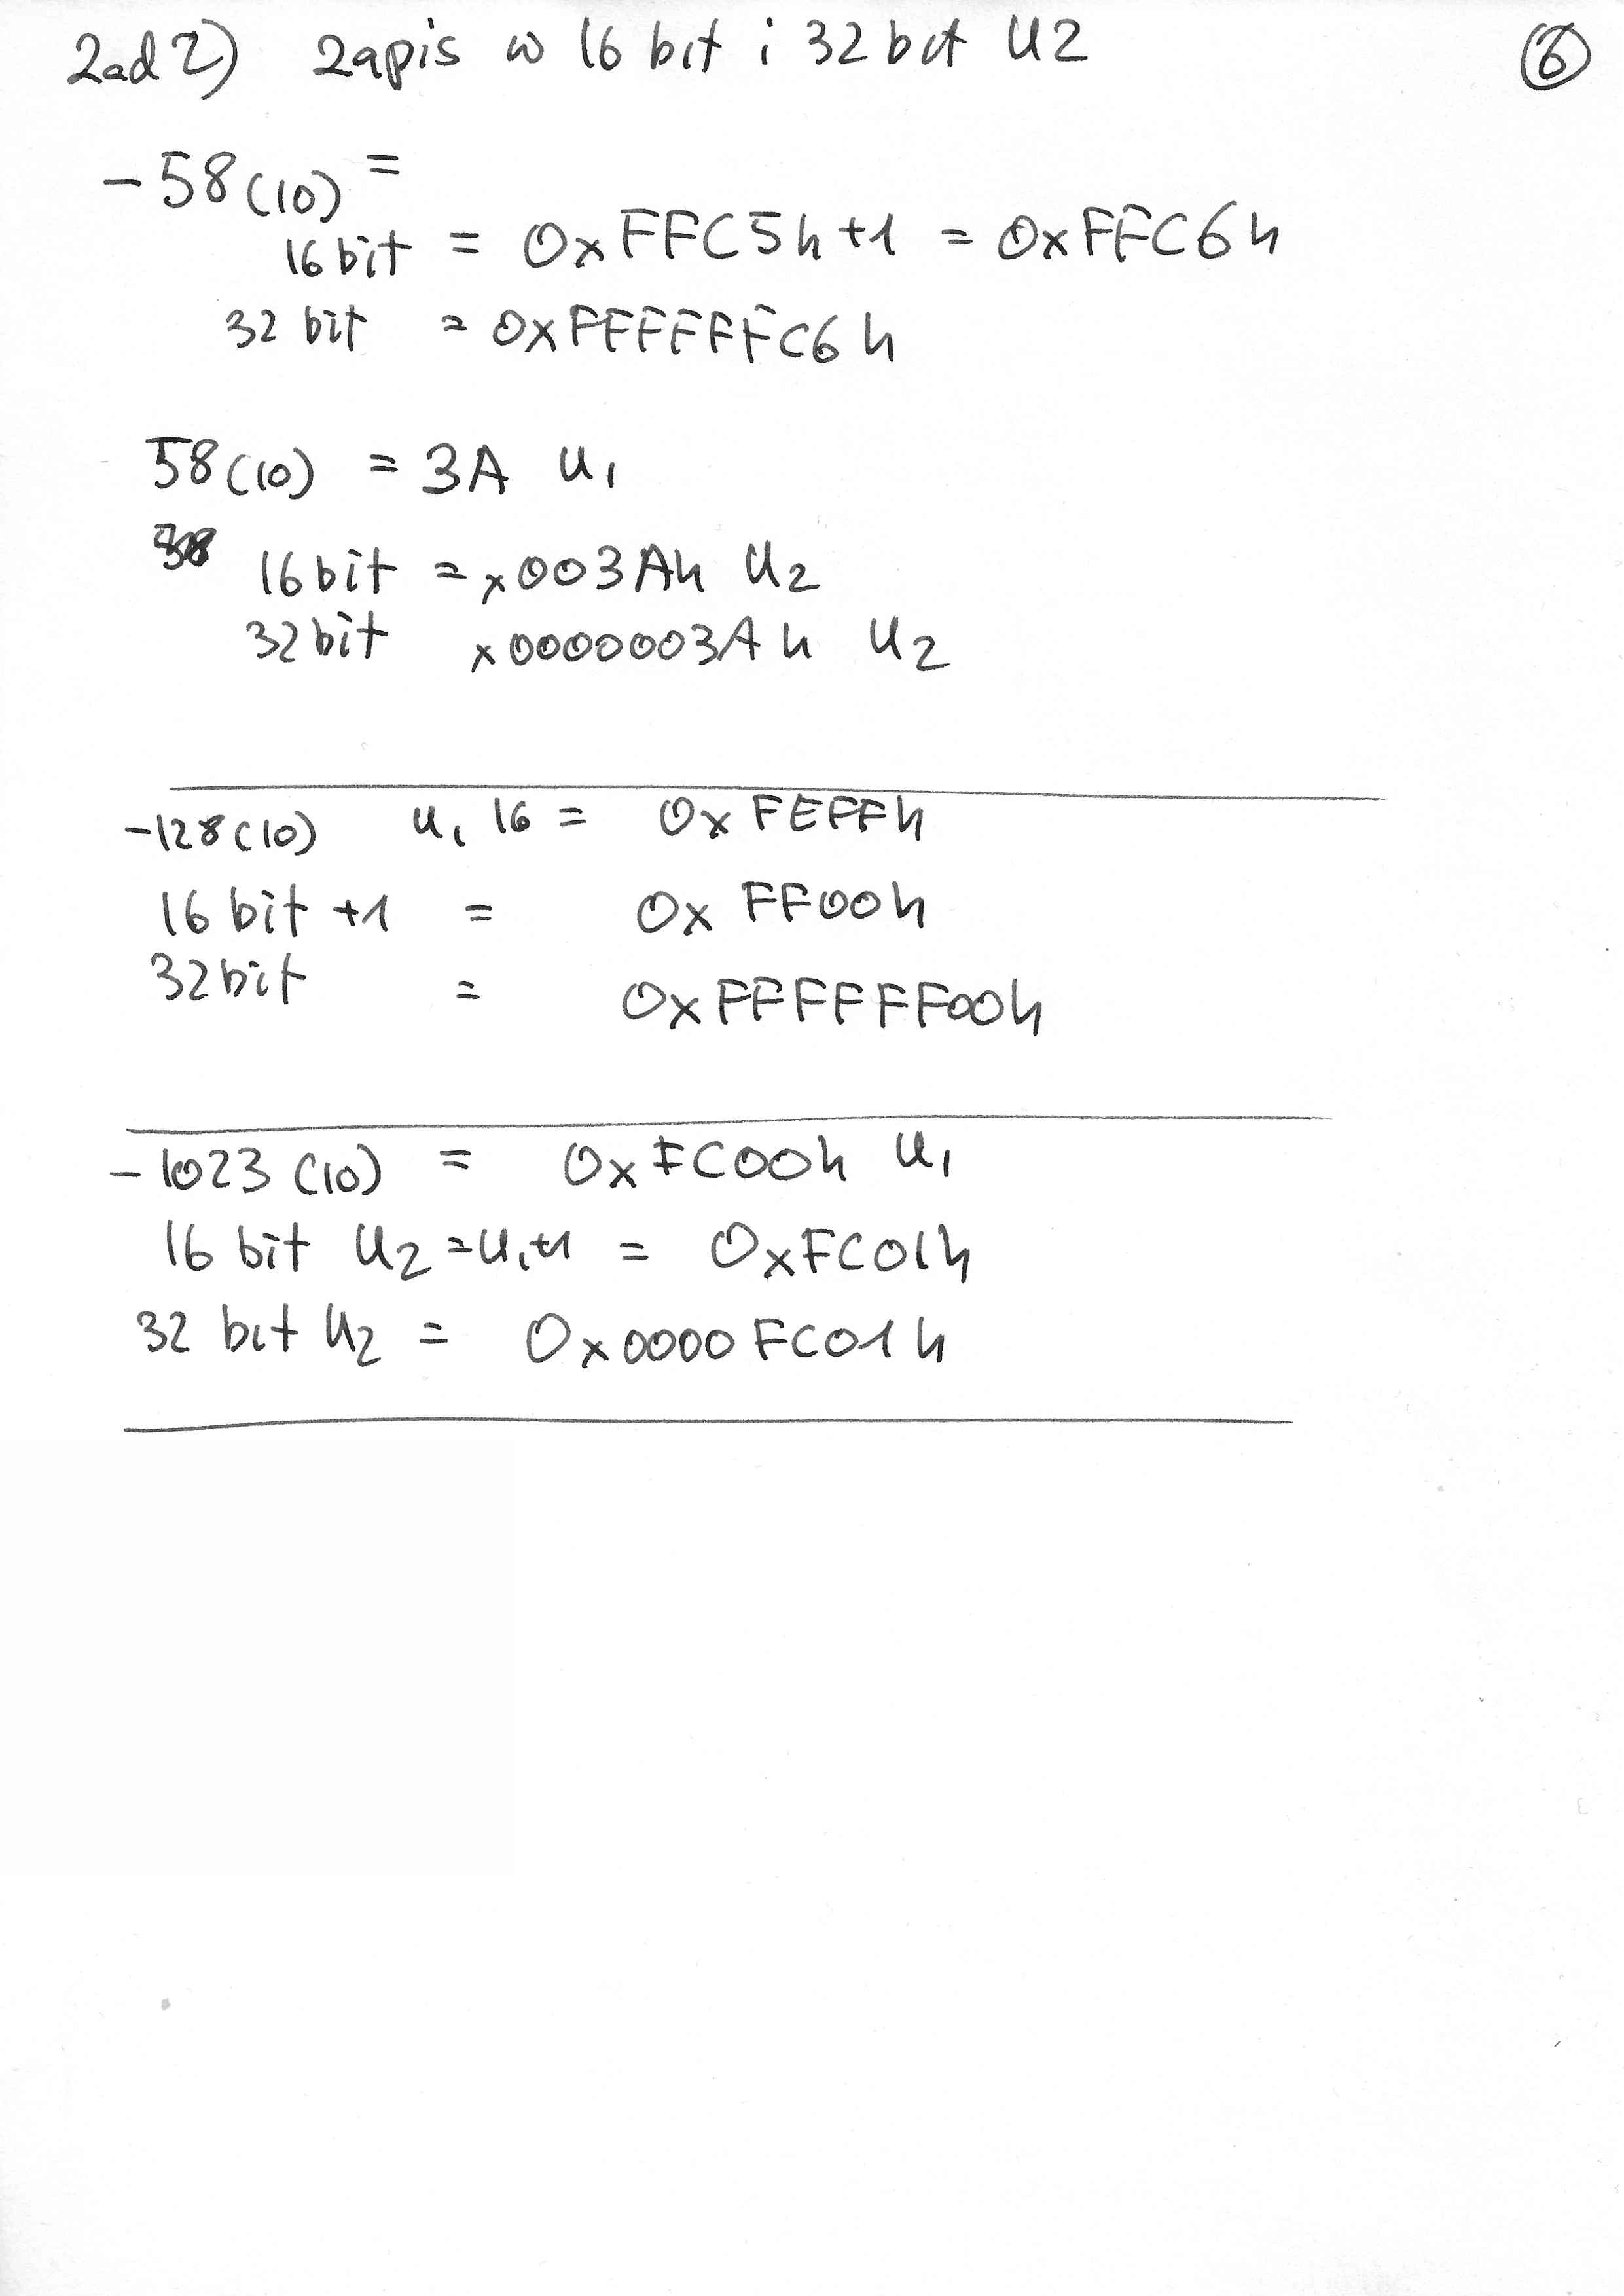 Zad 2) Zapis w 16 bit i 32 bit U2 ⑥
-58(10) =
16 bit = 0xFFC5h+1 = 0xFFC6h
32 bit = 0xFFFFFFC6h
58(10) = 3A U1
16 bit = x003Ah U2
32 bit x0000003Ah U2
-128(10) U1 16 = 0xFEFFh
16 bit +1 = 0xFF00h
32 bit = 0xFFFFFF00h
-1023(10) = 0xFC00h U1
16 bit U2 = U1+1 = 0xFC01h
32 bit U2 = 0x0000FC01h